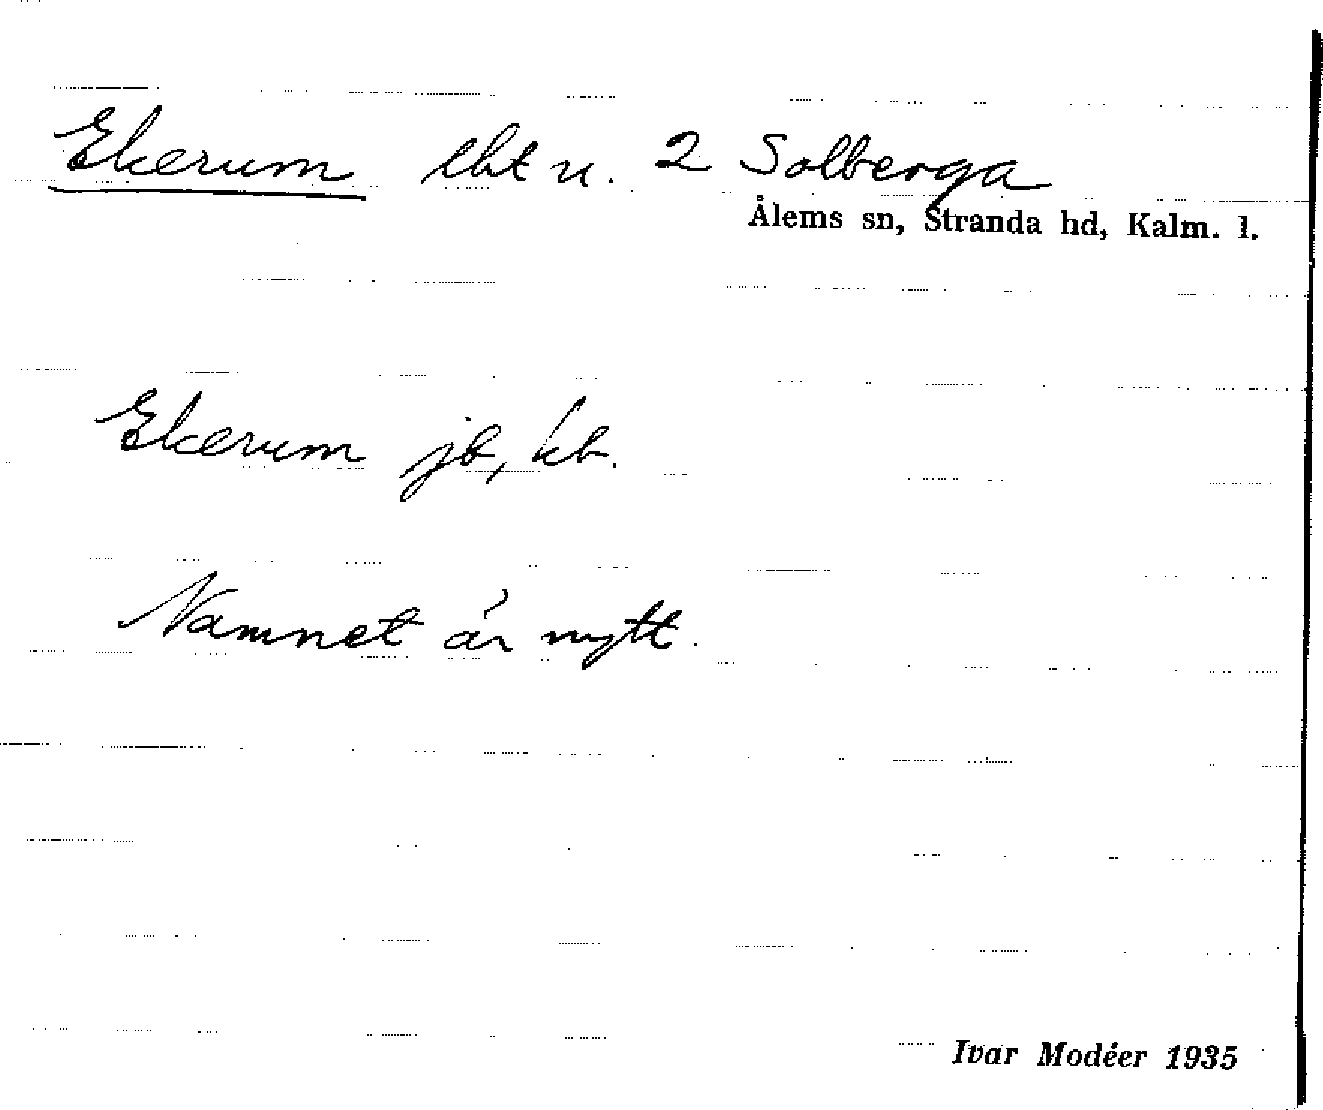 Ekerum lht u. 2 Solberga
Ålems sn, Stranda hd, Kalm. l.
Ekerum jb, kb.
Namnet är nytt.
Ivar Modéer 1935